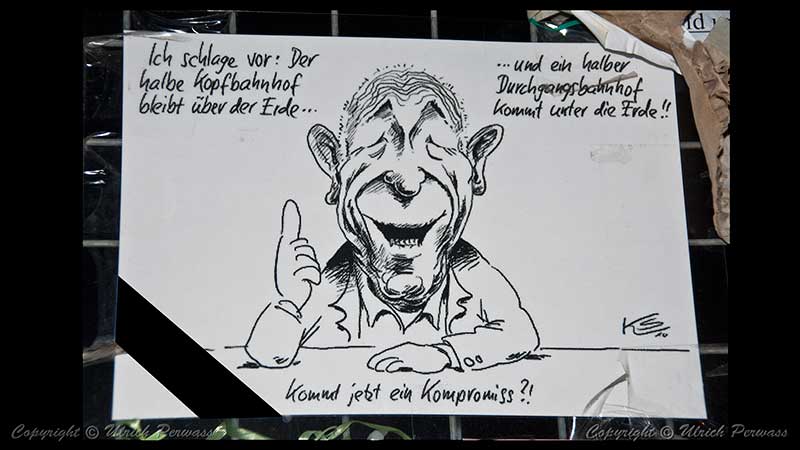 Ich schlage vor: Der
halbe Kopfbahnhof
bleibt über der Erde...
...und ein halber
Durchgangsbahnhof
kommt unter die Erde!!
Kommt jetzt ein Kompromiss?!
KS
10
Copyright © Ulrich Perwass
Copyright © Ulrich Perwass